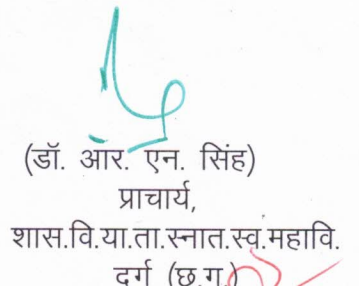 (डॉ. आर. एन. सिंह)
प्राचार्य,
शास.वि.या.ता.स्नात.स्व.महावि.
दुर्ग (छ.ग.)